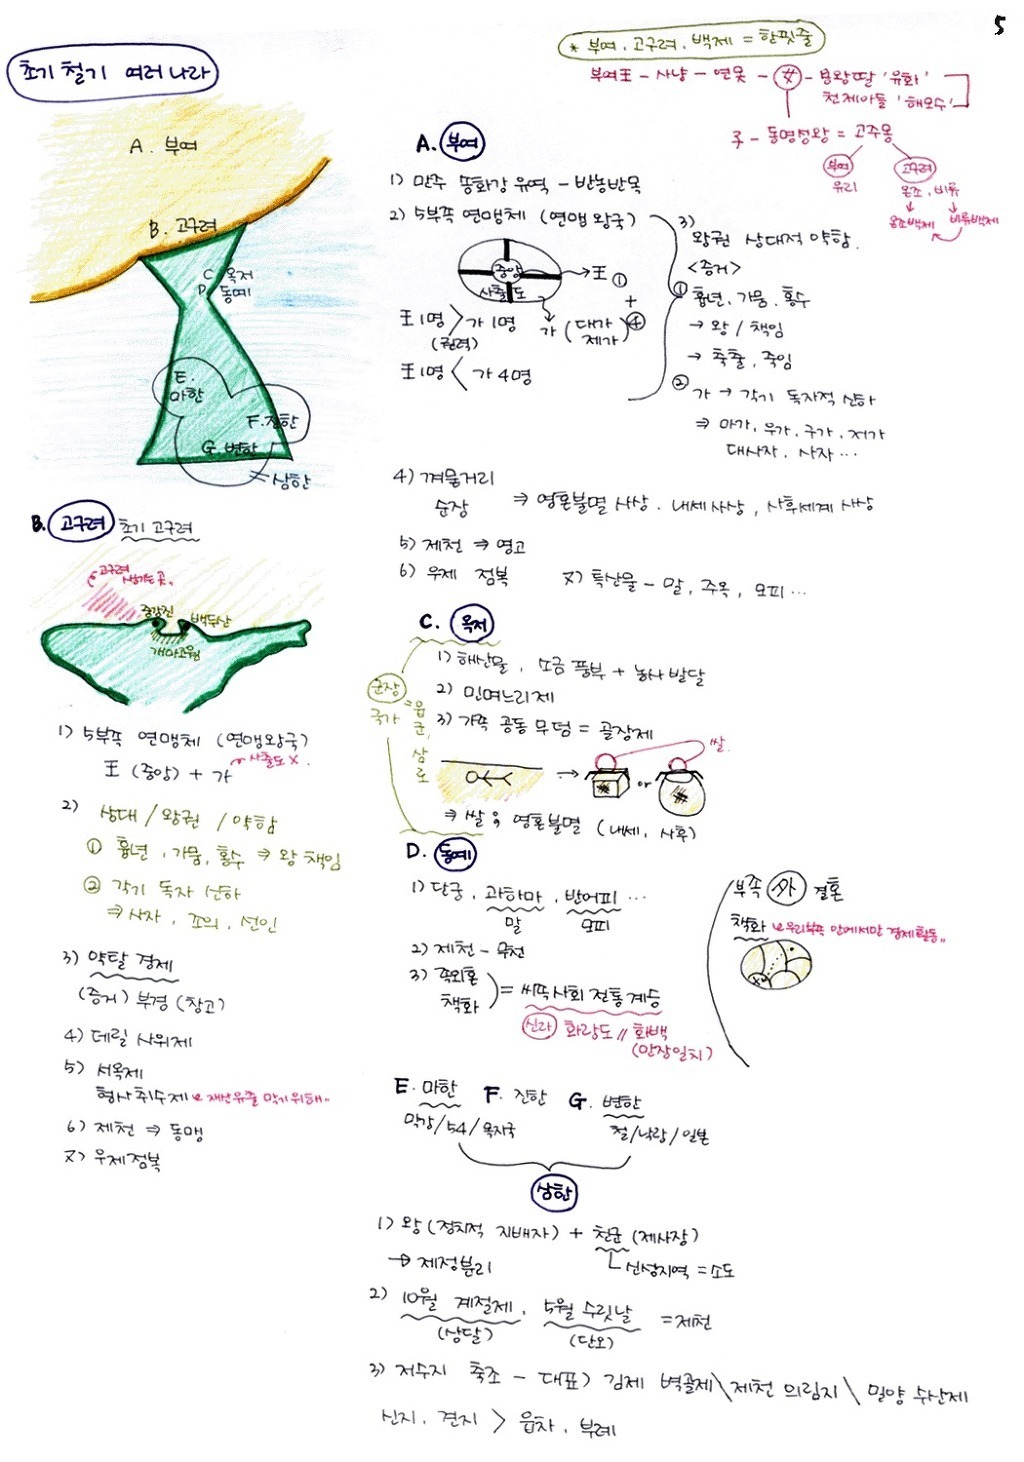 5
초기 철기 여러 나라
* 부여, 고구려, 백제 = 한핏줄
부여王 - 사냥 - 연못 - 女 - 용왕딸 '유화'
천제아들 '해모수'
子 - 동명성왕 = 고주몽
부여 고구려
유리 온조, 비류
온조백제 비류백제
A. 부여
B. 고구려
C 옥저
D 동예
E. 마한
F. 진한
G. 변한
= 삼한
A. 부여
1) 만주 쑹화강 유역 - 반농반목
2) 5부족 연맹체 (연맹 왕국)
중앙 → 王 ①
사출도
+
가 (대가 제가) ④
王 1명 > 가 1명
(권력)
王 1명 < 가 4명
3)
왕권 상대적 약함.
<증거>
① 흉년, 가뭄, 홍수
→ 왕 / 책임
→ 축출, 죽임
② 가 → 각기 독자적 신하
⇒ 마가, 우가, 구가, 저가
대사자, 사자 …
4) 껴묻거리
순장 ⇒ 영혼불멸 사상. 내세 사상, 사후세계 사상
5) 제천 ⇒ 영고
6) 우제 점복
7) 특산물 - 말, 주옥, 모피 …
B. 고구려 초기 고구려
고구려
생기는 곳.
중강진
백두산
개마고원
1) 5부족 연맹체 (연맹왕국)
王 (중앙) + 가
사출도 X.
2) 상대 / 왕권 / 약함
① 흉년, 가뭄, 홍수 ⇒ 왕 책임
② 각기 독자 신하
⇒ 사자, 조의, 선인
3) 약탈 경제
(증거) 부경 (창고)
4) 데릴 사위제
5) 서옥제
형사취수제 재산유출 막기 위해..
6) 제천 ⇒ 동맹
7) 우제점복
C. 옥저
군장
국가
= 읍군, 삼로
1) 해산물, 소금 풍부 + 농사 발달
2) 민며느리제
3) 가족 공동 무덤 = 골장제
→ or
쌀.
⇒ 쌀; 영혼불멸 (내세, 사후)
D. 동예
1) 단궁, 과하마, 반어피 …
말 모피
2) 제천 - 무천
3) 족외혼
책화
= 씨족사회 전통 계승
신라 화랑도 // 화백
(만장일치)
부족 外 결혼
책화 우리부족 안에서만 경제활동..
E. 마한 F. 진한 G. 변한
막강/54/목지국
철/낙랑/일본
삼한
1) 왕 (정치적 지배자) + 천군 (제사장)
→ 제정분리
신성지역 = 소도
2) 10월 계절제, 5월 수릿날 = 제천
(상달) (단오)
3) 저수지 축조 - 대표) 김제 벽골제 \ 제천 의림지 \ 밀양 수산제
신지, 견지 > 읍차, 부례